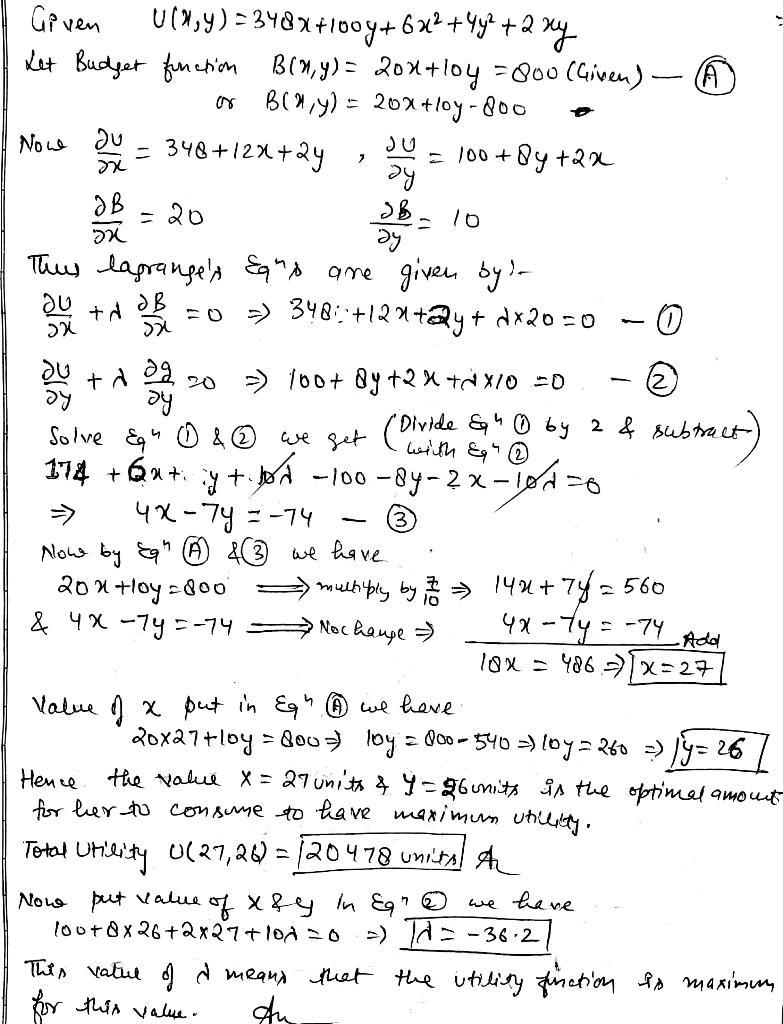 Given U(x,y) = 348x+100y+6x²+4y²+2xy
Let Budget function B(x,y) = 20x+10y = 800 (Given) — Ⓐ
or B(x,y) = 20x+10y-800
Now ∂U/∂x = 348+12x+2y , ∂U/∂y = 100+8y+2x
∂B/∂x = 20 ∂B/∂y = 10
Thus lagrange's Eqⁿs are given by:-
∂U/∂x + λ ∂B/∂x = 0 ⇒ 348+12x+2y+ λ×20=0 — ①
∂U/∂y + λ ∂g/∂y =0 ⇒ 100+8y+2x+λ×10=0 — ②
Solve Eqⁿ ① & ② we get (Divide Eqⁿ ① by 2 & subtract with Eqⁿ ②)
174 + 6x + y + 10λ - 100 - 8y - 2x - 10λ = 0
⇒ 4x-7y = -74 — ③
Now by Eqⁿ Ⓐ & ③ we have
20x+10y=800 ⟹ multiply by 7/10 ⇒ 14x+7y = 560
& 4x-7y=-74 ⟹ Nochange ⇒ 4x-7y = -74 Add
18x = 486 ⇒ x=27
Value of x put in Eqⁿ Ⓐ we have
20×27+10y=800 ⇒ 10y = 800-540 ⇒ 10y=260 ⇒ y=26
Hence the value X = 27units & Y = 26units is the optimal amount
for her to consume to have maximum utility.
Total Utility U(27,26) = 20478 units
Now put value of x & y in Eqⁿ ② we have
100+8×26+2×27+10λ=0 ⇒ λ = -36.2
This value of λ means that the utility function is maximum
for this value.